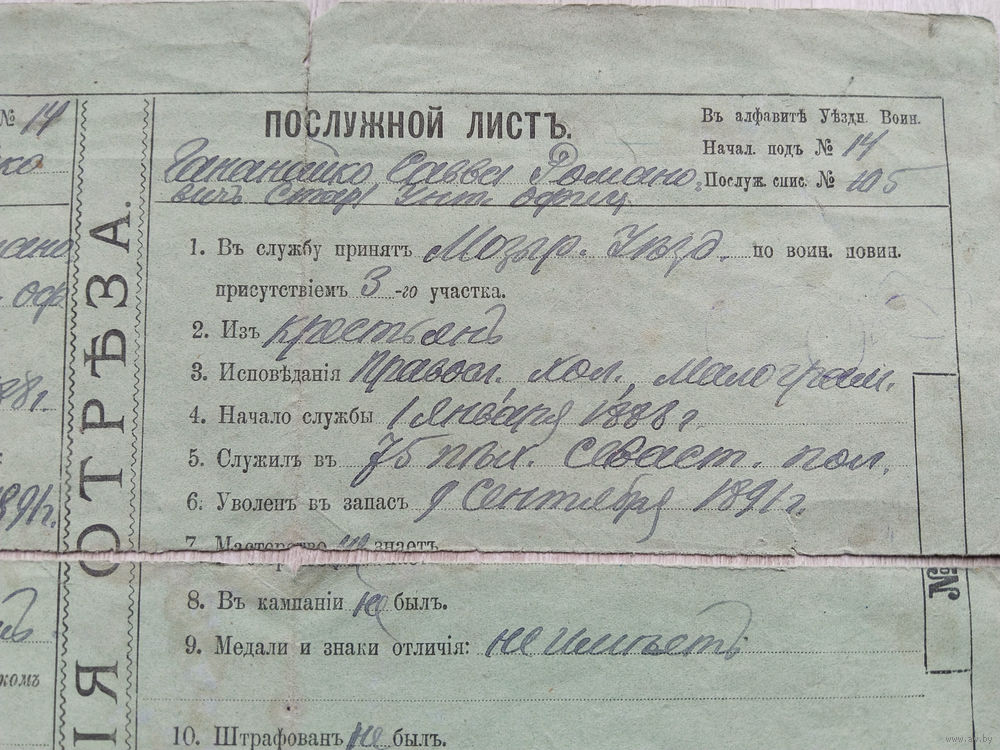 № 14
ко
оф
88 г.
891 г.
ЛИНІЯ ОТРѢЗА.
ПОСЛУЖНОЙ ЛИСТЪ.
Въ алфавитѣ Уѣздн. Воин.
Начал. подъ № 14
Послуж. спис. № 105
Савва Романо-
вичъ Стар. Унт. офиц.
1. Въ службу принятъ Мозыр. Уѣзд. по воин. повин.
присутствіемъ 3-го участка.
2. Изъ крестьянъ
3. Исповѣданія Правосл. хол. малограм.
4. Начало службы 1 января 1888 г.
5. Служилъ въ 75 пѣх. Севаст. пол.
6. Уволенъ въ запасъ 9 сентября 1891 г.
7. Мастерство не знаетъ
8. Въ кампаніи не былъ.
9. Медали и знаки отличія: не имѣетъ
10. Штрафованъ не былъ.
ком
№
www.av.by